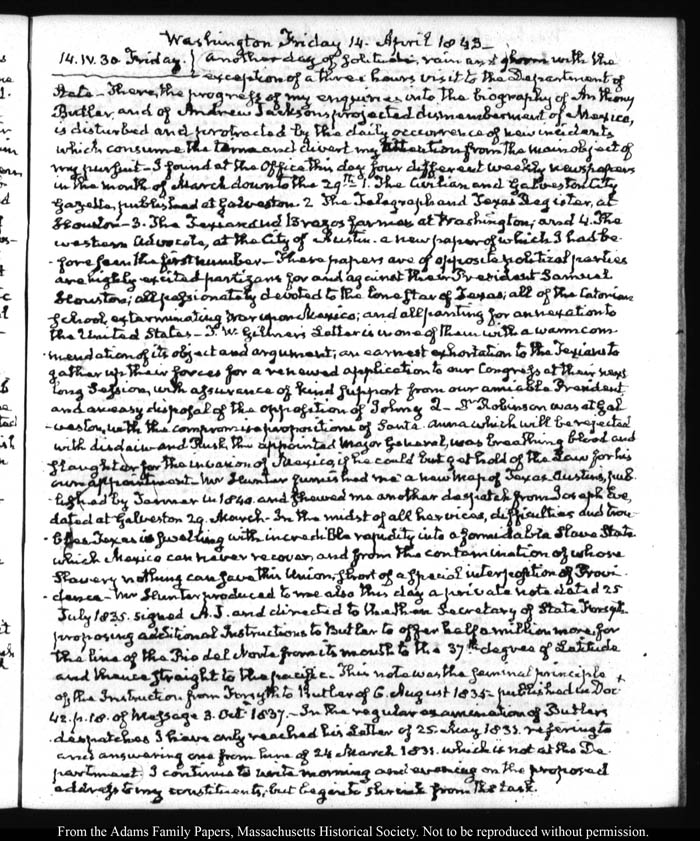 Washington Friday 14. April 1843_
14. IV. 30 Friday. Another day of solitude, rain and gloom with the
exception of a three hours visit to the Department of
State_ There, the progress of my enquiries into the biography of Anthony
Butler, and of Andrew Jacksons projected dismemberment of Mexico,
is disturbed and protracted by the daily occurrence of new incidents
which consume the time and divert my attention from the main object of
my pursuit_ I found at the Office this day four different weekly newspapers
in the month of March down to the 29th 1. The Civilian and Galveston City
Gazette, published at Galveston. 2 The Telegraph and Texas Register, at
Houston_ 3. The Texian and Brazos farmer, at Washington; and 4. The
western Advocate, at the City of Austin. a new paper of which I had be-
-fore seen the first number_ These papers are of opposite political parties
are highly excited partizans for and against their President Samuel
Houston; all passionately devoted to the lone Star of Texas; all of the Catonian
School, exterminating War upon Mexico; and all panting for annexation to
the United States_ T. W. Gilmer's Letter is in one of them with a warm com-
-mendation of its object and argument; an earnest exhortation to the Texians to
gather up their forces for a renewed application to our Congress at their next
long Session, with assurance of kind support from our amiable President
and an easy disposal of the opposition of Johnny Q_ Dr Robinson was at Gal-
-veston, with the compromise propositions of Santa Anna which will be rejected
with disdain and Rusk, the appointed Major General, was breathing blood and
slaughter for the invasion of Mexico, if he could but get hold of the Law for his
own appointment_ Mr Hunter furnished me a new map of Texas Austin's, pub-
lished by Tanner in 1840. and shewed me another despatch from Joseph Eve,
dated at Galveston 29. March_ In the midst of all her vices, difficulties and trou-
bles Texas is swelling with incredible rapidity into a formidable Slave State
which Mexico can never recover, and from the contamination of whose
Slavery nothing can save this Union, short of a special interposition of Provi-
-dence_ Mr Hunter produced to me also this day a private note dated 25
July 1835. signed A. J. and directed to the then Secretary of State Forsyth
proposing additional Instructions to Butler to offer half a million more for
the line of the Rio del Norte from its mouth to the 37th degree of Latitude
and thence straight to the pacific_ This note was the seminal principle
of the Instruction from Forsyth to Butler of 6. August 1835_ published in Doc
42. p. 18. of Message 3. Oct 1837._ In the regular examination of Butlers
despatches I have only reached his Letter of 25. May 1831. referring to
and answering one from him of 24 March 1831. which is not at the De-
partment. I continue to write morning and evening on the proposed
address to my constituents, but begin to shrink from the task.
From the Adams Family Papers, Massachusetts Historical Society. Not to be reproduced without permission.